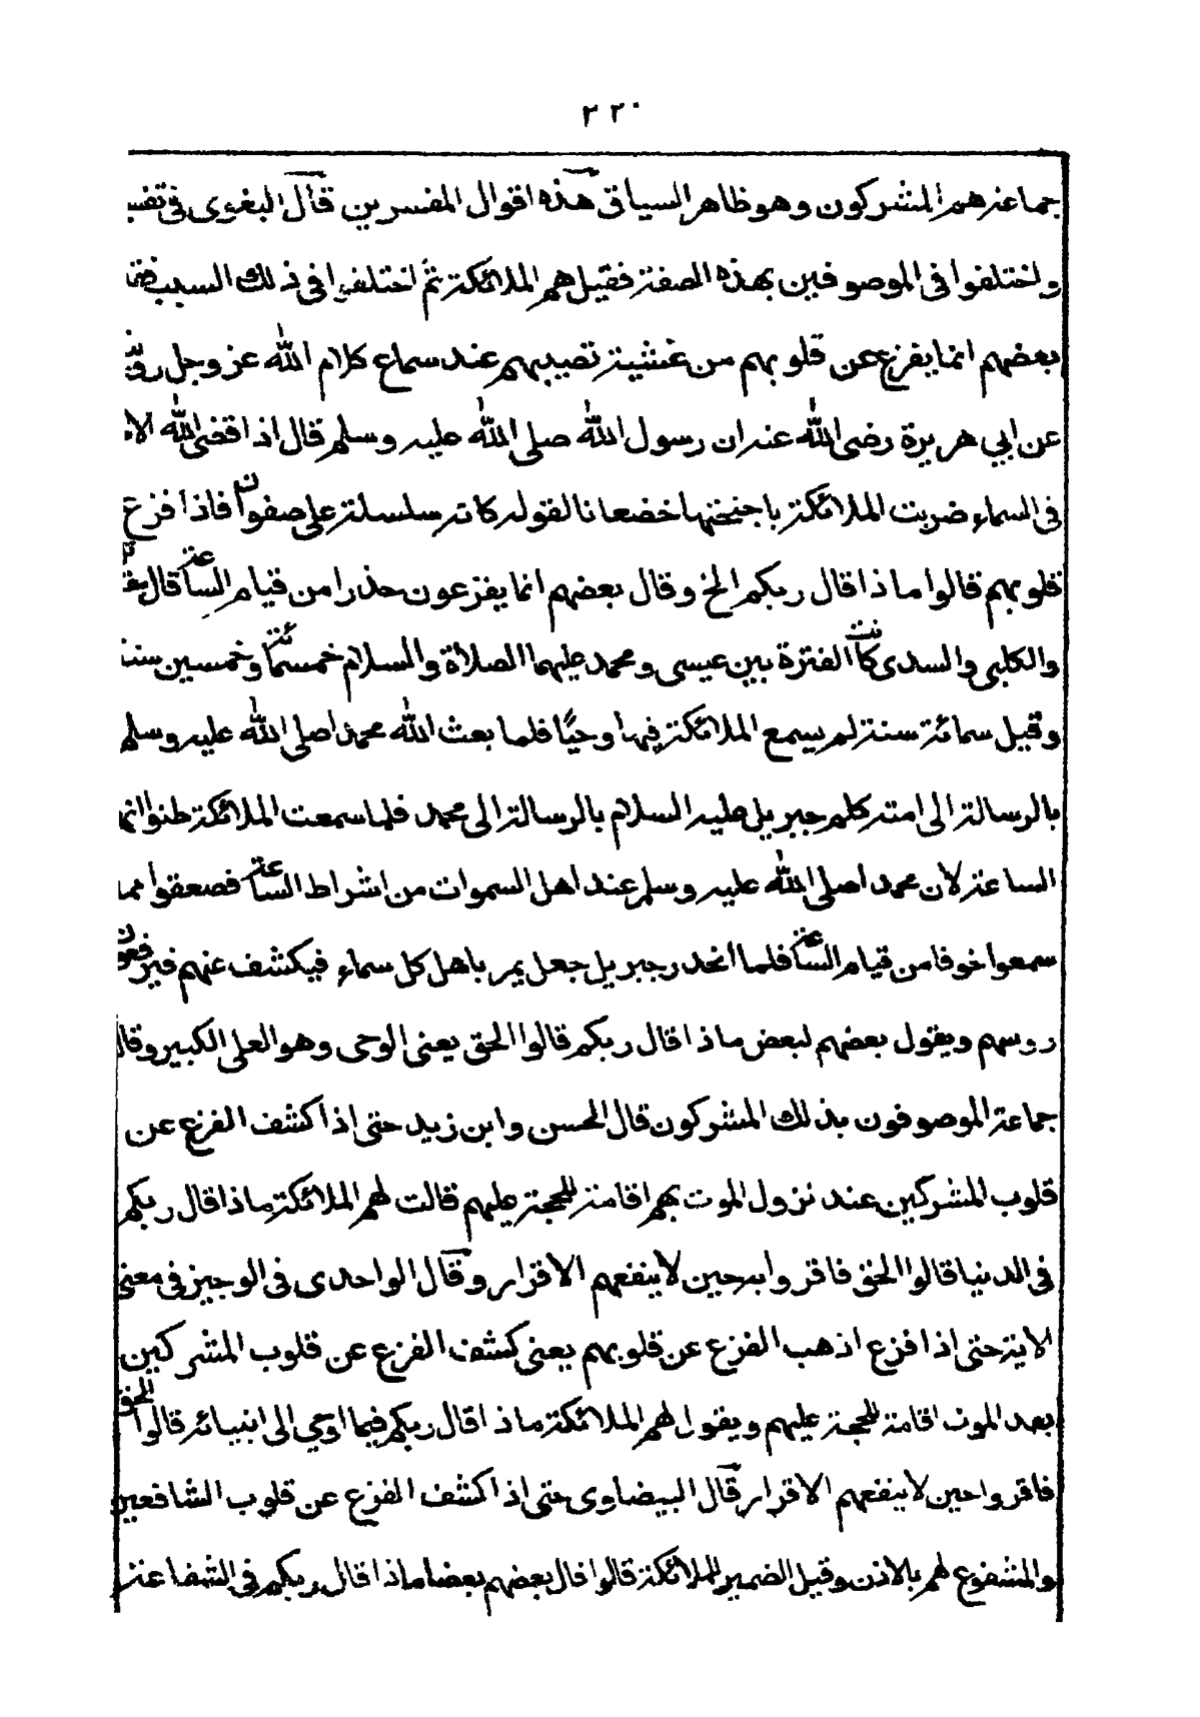 ٢٢٠
جماعة هم المشركون وهو ظاهر السياق هذه اقوال المفسرين قال البغوى فى
واختلفوا فى الموصوفين بهذه الصفة فقيل هم الملائكة ثم اختلفوا فى ذلك السبب
بعضهم انما يفزع عن قلوبهم من غشية تصيبهم عند سماع كلام الله عز وجل
عن ابي هريرة رضى الله عنه ان رسول الله صلى الله عليه وسلم قال اذا قضى الله
فى السماء ضربت الملائكة باجنحتها خضعانا لقوله كانه سلسلة على صفوان فاذا فزع
قلوبهم قالوا ماذا قال ربكم الخ وقال بعضهم انما يفزعون حذرا من قيام الساعة قال
والكلبى والسدى كانت الفترة بين عيسى ومحمد عليهما الصلاة والسلام خمسمائة وخمسين سنة
وقيل ستمائة سنة لم يسمع الملائكة فيها وحيًا فلما بعث الله محمدا صلى الله عليه وسلم
بالرسالة الى امته كلم جبريل عليه السلام بالرسالة الى محمد فلما سمعت الملائكة ظنوا انها
الساعة لان محمدا صلى الله عليه وسلم عند اهل السموات من اشراط الساعة فصعقوا مما
سمعوا خوفا من قيام الساعة فلما انحدر جبريل جعل يمر باهل كل سماء فيكشف عنهم فيرفعون
روسهم ويقول بعضهم لبعض ماذا قال ربكم قالوا الحق يعنى الوحى وهو العلى الكبير وقال
جماعة الموصوفون بذلك المشركون قال الحسن وابن زيد حتى اذا كشف الفزع عن
قلوب المشركين عند نزول الموت بهم اقامة للحجة عليهم قالت لهم الملائكة ماذا قال ربكم
فى الدنيا قالوا الحق فاقروا به حين لا ينفعهم الاقرار وقال الواحدى فى الوجيز فى معنى
الاية حتى اذا فزع اذهب الفزع عن قلوبهم يعنى كشف الفزع عن قلوب المشركين
بعد الموت اقامة للحجة عليهم ويقول لهم الملائكة ماذا قال ربكم فيما اوحي الى انبيائه قالوا الحق
فاقروا حين لا ينفعهم الاقرار قال البيضاوى حتى اذا كشف الفزع عن قلوب الشافعين
والمشفوع لهم بالاذن وقيل الضمير للملائكة قالوا قال بعضهم بعضا ماذا قال ربكم فى الشفاعة